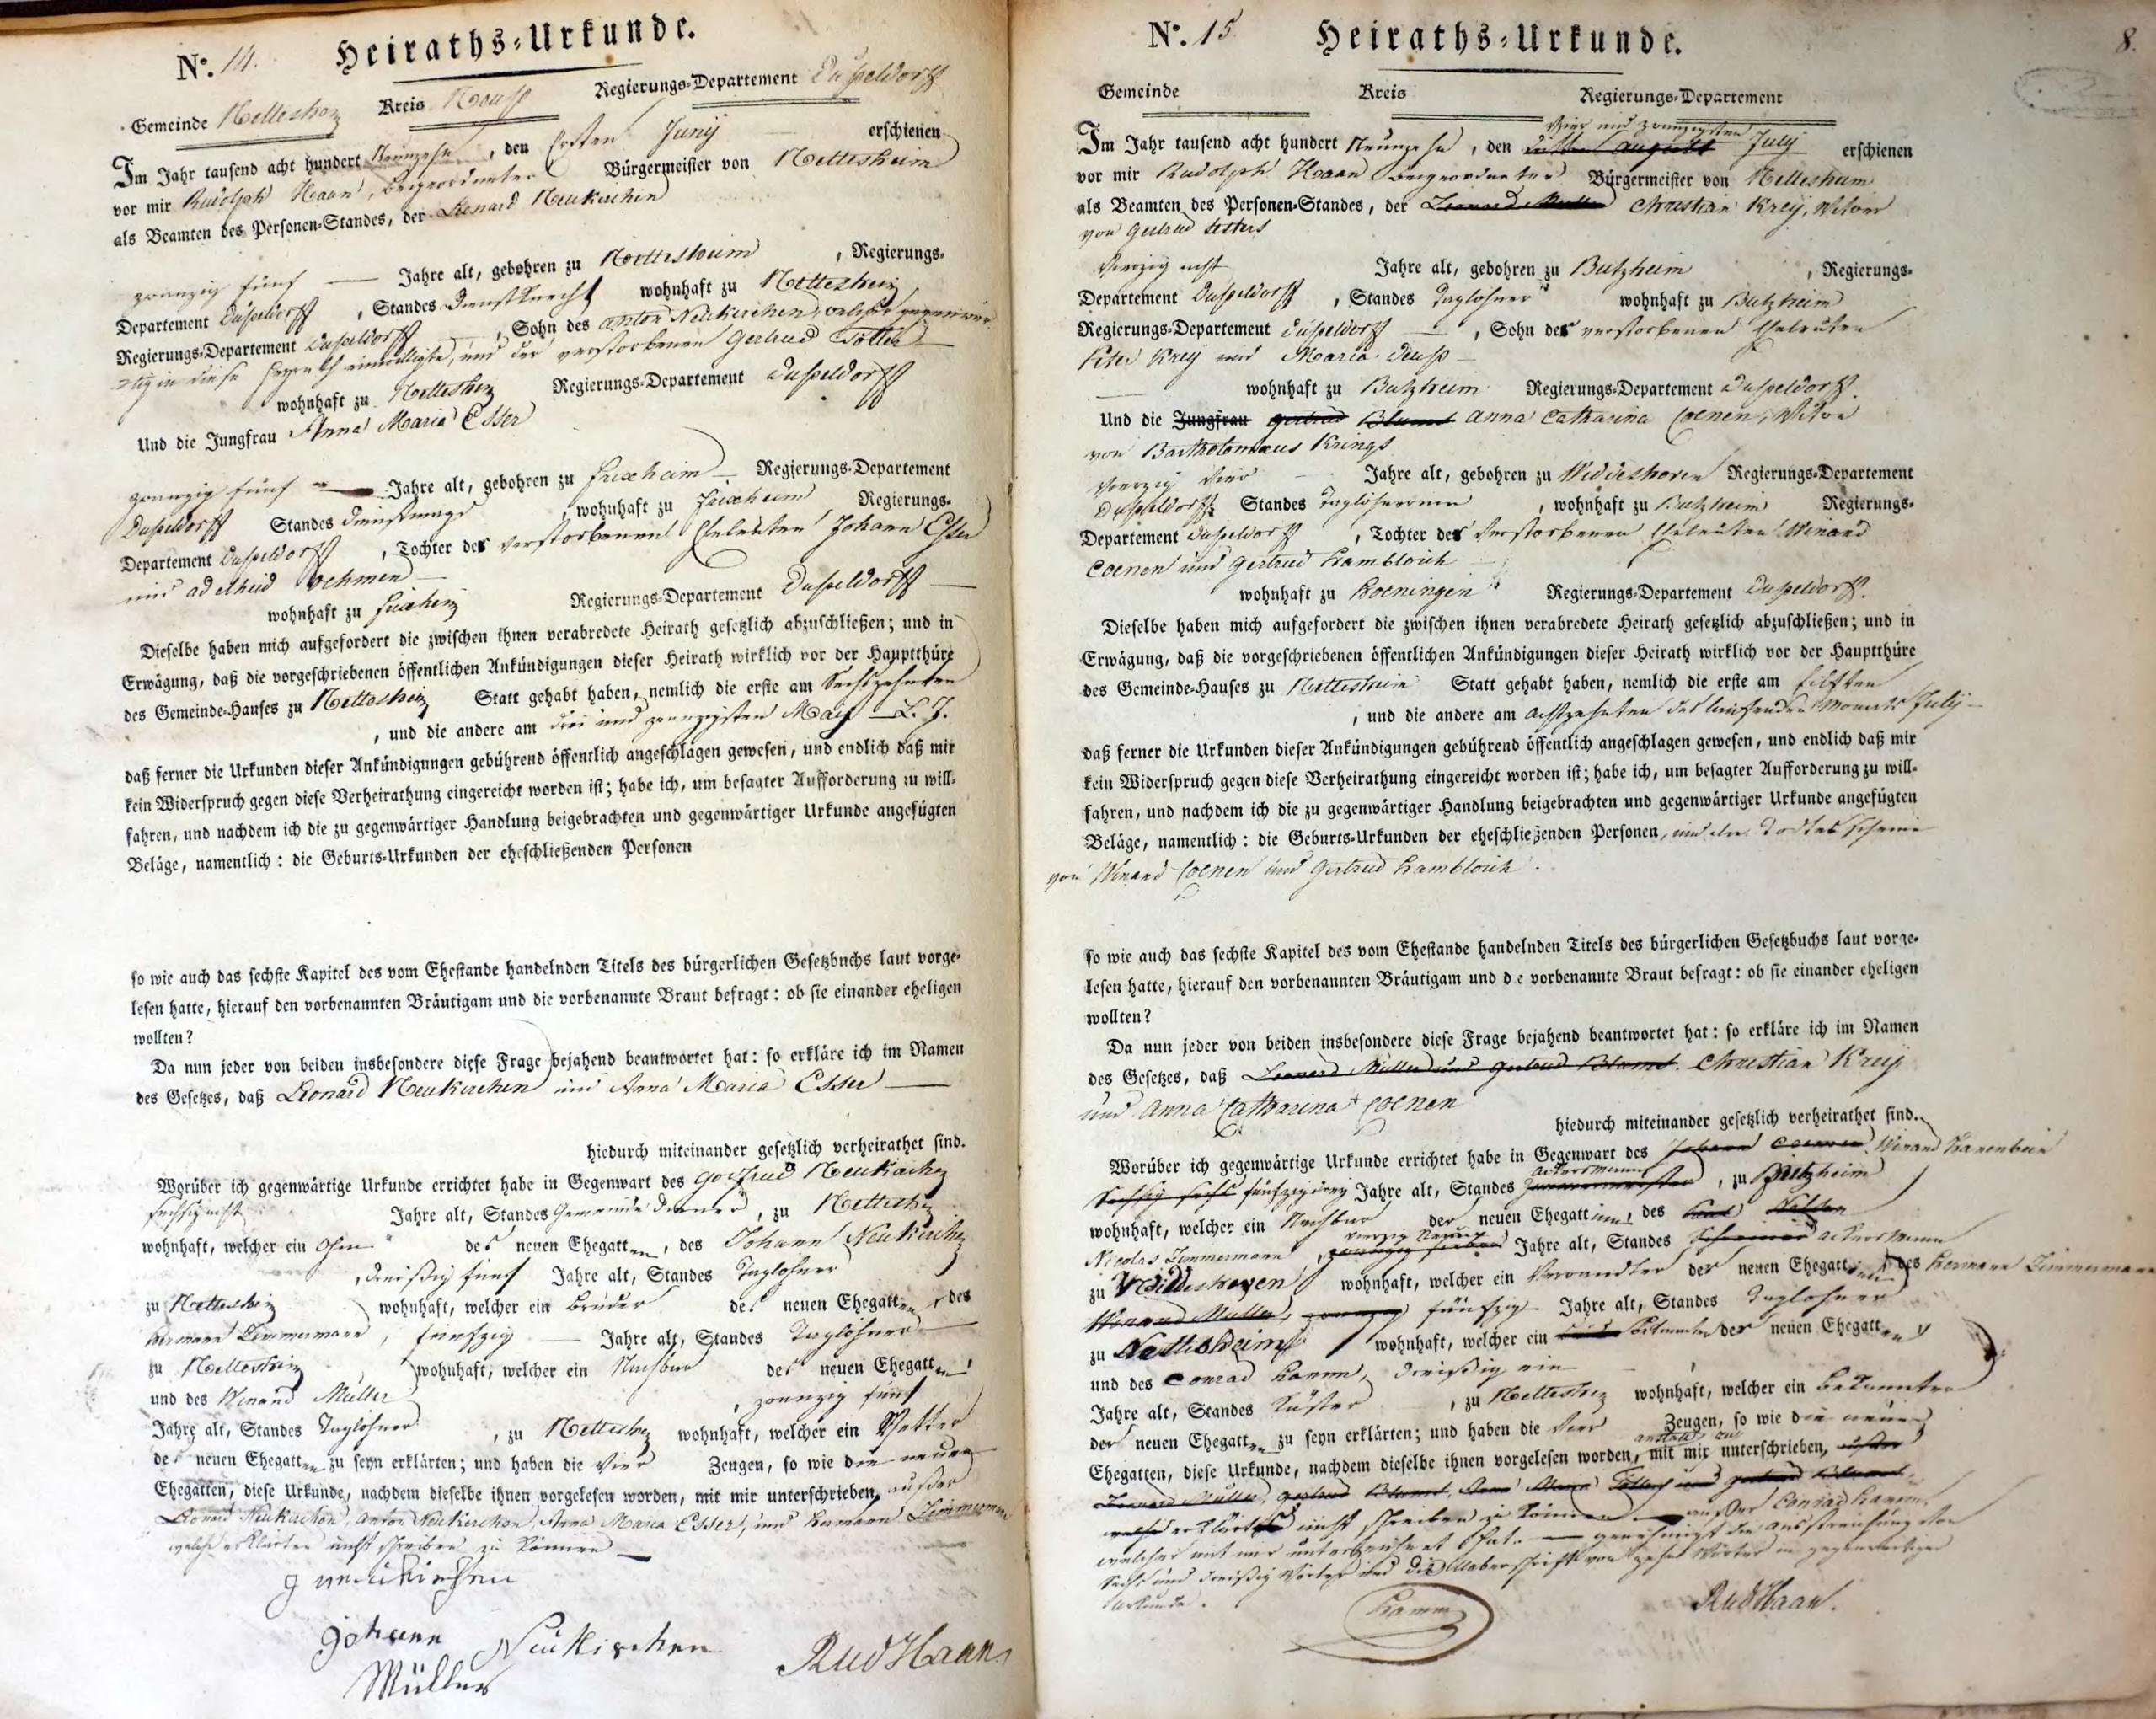 No. 14. Heiraths-Urkunde.
Gemeinde Nettesheim Kreis Neuss Regierungs-Departement Dusseldorff
Im Jahr tausend acht hundert Neunzehn, den Ersten Junij erschienen
vor mir Rudolph Haan, Beigeordneter Bürgermeister von Nettesheim
als Beamten des Personen-Standes, der Leonard Neukirchen
zwanzig fünf Jahre alt, gebohren zu Nettesheim, Regierungs-
Departement Dusseldorff, Standes Dienstknecht wohnhaft zu Nettesheim
Regierungs-Departement Dusseldorff, Sohn des Anton Neukirchen, welcher gegenwär-
tig in diese Heyrath einwilligte, und der verstorbenen Gertrud
wohnhaft zu Nettesheim Regierungs-Departement Dusseldorff
Und die Jungfrau Anna Maria Esser
zwanzig fünf Jahre alt, gebohren zu Frixheim Regierungs-Departement
Dusseldorff Standes Dienstmagd, wohnhaft zu Frixheim Regierungs-
Departement Dusseldorff, Tochter der verstorbenen Eheleuten Johann Esser
und Adelheid Oehmen
wohnhaft zu Frixheim Regierungs-Departement Dusseldorff
Dieselbe haben mich aufgefordert die zwischen ihnen verabredete Heirath gesetzlich abzuschließen; und in
Erwägung, daß die vorgeschriebenen öffentlichen Ankündigungen dieser Heirath wirklich vor der Hauptthüre
des Gemeinde-Hauses zu Nettesheim Statt gehabt haben, nemlich die erste am Sechszehnten
, und die andere am drei und zwanzigsten Maij L. J.
daß ferner die Urkunden dieser Ankündigungen gebührend öffentlich angeschlagen gewesen, und endlich daß mir
kein Widerspruch gegen diese Verheirathung eingereicht worden ist; habe ich, um besagter Aufforderung zu will-
fahren, und nachdem ich die zu gegenwärtiger Handlung beigebrachten und gegenwärtiger Urkunde angefügten
Beläge, namentlich: die Geburts-Urkunden der eheschließenden Personen
so wie auch das sechste Kapitel des vom Ehestande handelnden Titels des bürgerlichen Gesetzbuchs laut vorge-
lesen hatte, hierauf den vorbenannten Bräutigam und die vorbenannte Braut befragt: ob sie einander eheligen
wollten?
Da nun jeder von beiden insbesondere diese Frage bejahend beantwortet hat: so erkläre ich im Namen
des Gesetzes, daß Leonard Neukirchen und Anna Maria Esser
hiedurch miteinander gesetzlich verheirathet sind.
Worüber ich gegenwärtige Urkunde errichtet habe in Gegenwart des Gotfried Neukirchen
sechszig acht Jahre alt, Standes Gemeinde Diener, zu Nettesheim
wohnhaft, welcher ein Ohm der neuen Ehegatten, des Johann Neukirchen
, dreißig fünf Jahre alt, Standes Taglöhner
zu Nettesheim wohnhaft, welcher ein Bruder der neuen Ehegatten, des
Hermann Zimmermann, fünfzig Jahre alt, Standes Taglöhner
zu Nettesheim wohnhaft, welcher ein Nachbar der neuen Ehegatten,
und des Winand Müller, zwanzig fünf
Jahre alt, Standes Taglöhner, zu Nettesheim wohnhaft, welcher ein Vetter
der neuen Ehegatten zu seyn erklärten; und haben die vier Zeugen, so wie die neuen
Ehegatten, diese Urkunde, nachdem dieselbe ihnen vorgelesen worden, mit mir unterschrieben, außer
Leonard Neukirchen, Anton Neukirchen, Anna Maria Esser, und Hermann Zimmermann
welche erklärten nicht schreiben zu können
g neukirchen
Johann Neukirchen
Müller
Rud Haan
8.
No. 15 Heiraths-Urkunde.
Gemeinde Kreis Regierungs-Departement
vier und zwanzigsten
Im Jahr tausend acht hundert Neunzehn, den August July erschienen
vor mir Rudolph Haan Beigeordneter Bürgermeister von Nettesheim
als Beamten des Personen-Standes, der Leonard Müller Christian Kreij, Witwer
von Gertrud
vierzig acht Jahre alt, gebohren zu Butzheim, Regierungs-
Departement Dusseldorff, Standes Taglöhner wohnhaft zu Butzheim
Regierungs-Departement Dusseldorff, Sohn der verstorbenen Eheleuten
Peter Kreij und Maria Deuss
wohnhaft zu Butzheim Regierungs-Departement Dusseldorff.
Und die Jungfrau Gertrud Anna Catharina Coenen, Witwe
von Bartholomaeus Krings
vierzig vier Jahre alt, gebohren zu Widdeshoven Regierungs-Departement
Dusseldorff Standes Taglöhnerinn, wohnhaft zu Butzheim Regierungs-
Departement Dusseldorff, Tochter der verstorbenen Eheleuten Winand
Coenen und Gertrud Hambloch
wohnhaft zu Hoeningen Regierungs-Departement Dusseldorff.
Dieselbe haben mich aufgefordert die zwischen ihnen verabredete Heirath gesetzlich abzuschließen; und in
Erwägung, daß die vorgeschriebenen öffentlichen Ankündigungen dieser Heirath wirklich vor der Hauptthüre
des Gemeinde-Hauses zu Nettesheim Statt gehabt haben, nemlich die erste am Eilften
, und die andere am achtzehnten des laufenden Monats July
daß ferner die Urkunden dieser Ankündigungen gebührend öffentlich angeschlagen gewesen, und endlich daß mir
kein Widerspruch gegen diese Verheirathung eingereicht worden ist; habe ich, um besagter Aufforderung zu will-
fahren, und nachdem ich die zu gegenwärtiger Handlung beigebrachten und gegenwärtiger Urkunde angefügten
Beläge, namentlich: die Geburts-Urkunden der eheschließenden Personen, und die Todtes scheine
von Winand Coenen und Gertrud Hambloch.
so wie auch das sechste Kapitel des vom Ehestande handelnden Titels des bürgerlichen Gesetzbuchs laut vorge-
lesen hatte, hierauf den vorbenannten Bräutigam und d e vorbenannte Braut befragt: ob sie einander eheligen
wollten?
Da nun jeder von beiden insbesondere diese Frage bejahend beantwortet hat: so erkläre ich im Namen
des Gesetzes, daß Leonard Müller und Gertrud Christian Kreij
und Anna Catharina Coenen
hiedurch miteinander gesetzlich verheirathet sind.
Worüber ich gegenwärtige Urkunde errichtet habe in Gegenwart des Johann Winand
ackersmann
sechszig sechs fünfzig drey Jahre alt, Standes, zu Butzheim
wohnhaft, welcher ein Nachbar der neuen Ehegattinn, des
vierzig neun
Nicolas Zimmermann, zwanzig sieben Jahre alt, Standes Schreiner ackersmann
zu Widdeshoven wohnhaft, welcher ein Verwandter der neuen Ehegatten des Hermann Zimmermann
Winand Müller, zwanzig fünfzig Jahre alt, Standes Taglöhner
zu Nettesheim wohnhaft, welcher ein Bekannter der neuen Ehegatten
und des Conrad Hamm, dreißig ein
Jahre alt, Standes Küster, zu Nettesheim wohnhaft, welcher ein Bekannter
der neuen Ehegatten zu seyn erklärten; und haben die vier Zeugen, so wie die neuen
anstatt zu
Ehegatten, diese Urkunde, nachdem dieselbe ihnen vorgelesen worden, mit mir unterschrieben, außer
Leonard Müller, Gertrud Anna Maria und Gertrud
welche erklärten nicht schreiben zu können außer Conrad Hamm,
welcher mit mir unterzeichnet hat. genehmigt die Ausstreichung von
sechs und dreißig Wörter und die Ueberschrift von zehn Wörter in gegenwärtiger
Urkunde.
Hamm
Rud Haan.